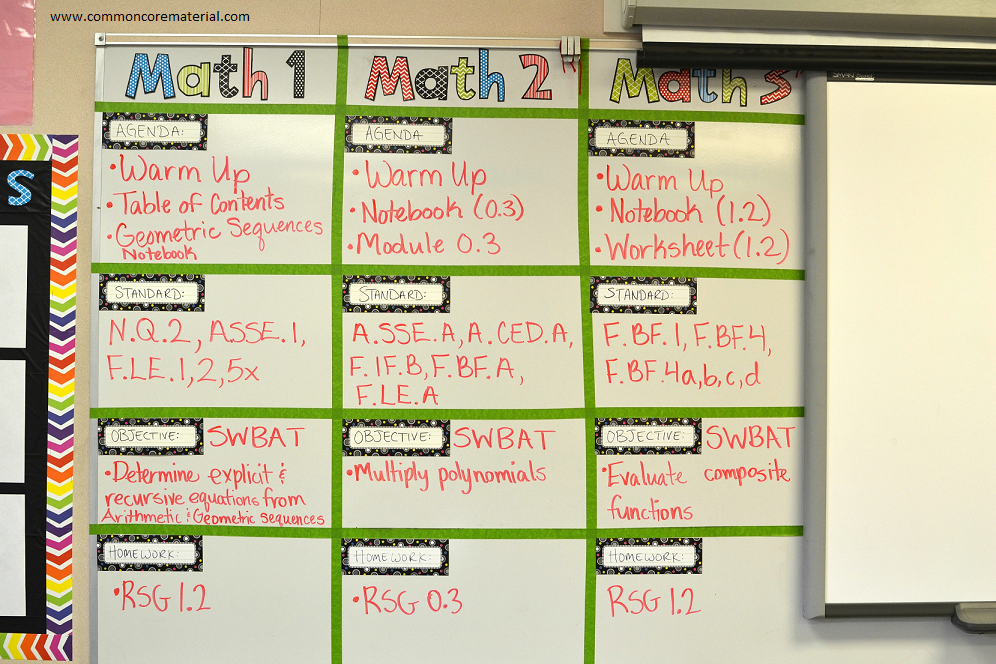 www.commoncorematerial.com
Math 1
AGENDA:
•Warm Up
•Table of Contents
•Geometric Sequences
Notebook
STANDARD:
N.Q.2, A.SSE.1,
F.LE.1,2,5x
OBJECTIVE: SWBAT
•Determine explicit &
recursive equations from
Arithmetic & Geometric Sequences
HOMEWORK:
•RSG 1.2
Math 2
AGENDA
•Warm Up
•Notebook (0.3)
•Module 0.3
STANDARD:
A.SSE.A, A.CED.A,
F.IF.B, F.BF.A,
F.LE.A
OBJECTIVE: SWBAT
•Multiply polynomials
HOMEWORK:
•RSG 0.3
Math 3
AGENDA
•Warm Up
•Notebook (1.2)
•Worksheet (1.2)
STANDARD:
F.BF.1, F.BF.4,
F.BF.4a,b,c,d
OBJECTIVE: SWBAT
•Evaluate composite
functions
HOMEWORK:
RSG 1.2
S